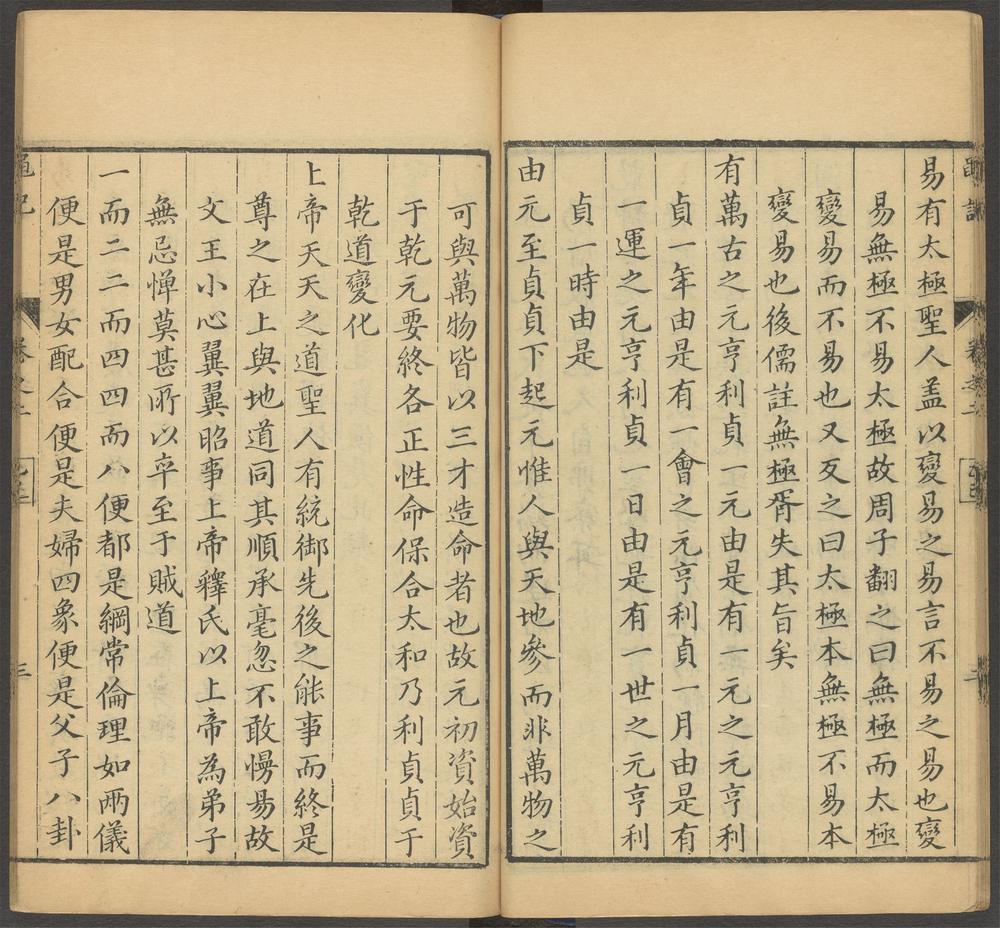 易有太極聖人盖以變易之易言不易之易也變
易無極不易太極故周子翻之曰無極而太極
變易而不易也又反之曰太極本無極不易本
變易也後儒註無極胥失其旨矣
有萬古之元亨利貞一元由是有一元之元亨利
貞一年由是有一會之元亨利貞一月由是有
一運之元亨利貞一日由是有一世之元亨利
貞一時由是
由元至貞貞下起元惟人與天地參而非萬物之
可與萬物皆以三才造命者也故元初資始資
于乾元要終各正性命保合太和乃利貞貞于
乾道變化
上帝天天之道聖人有統御先後之能事而終是
尊之在上與地道同其順承毫忽不敢慢易故
文王小心翼翼昭事上帝釋氏以上帝為弟子
無忌憚莫甚所以卒至于賊道
一而二二而四四而八便都是綱常倫理如兩儀
便是男女配合便是夫婦四象便是父子八卦